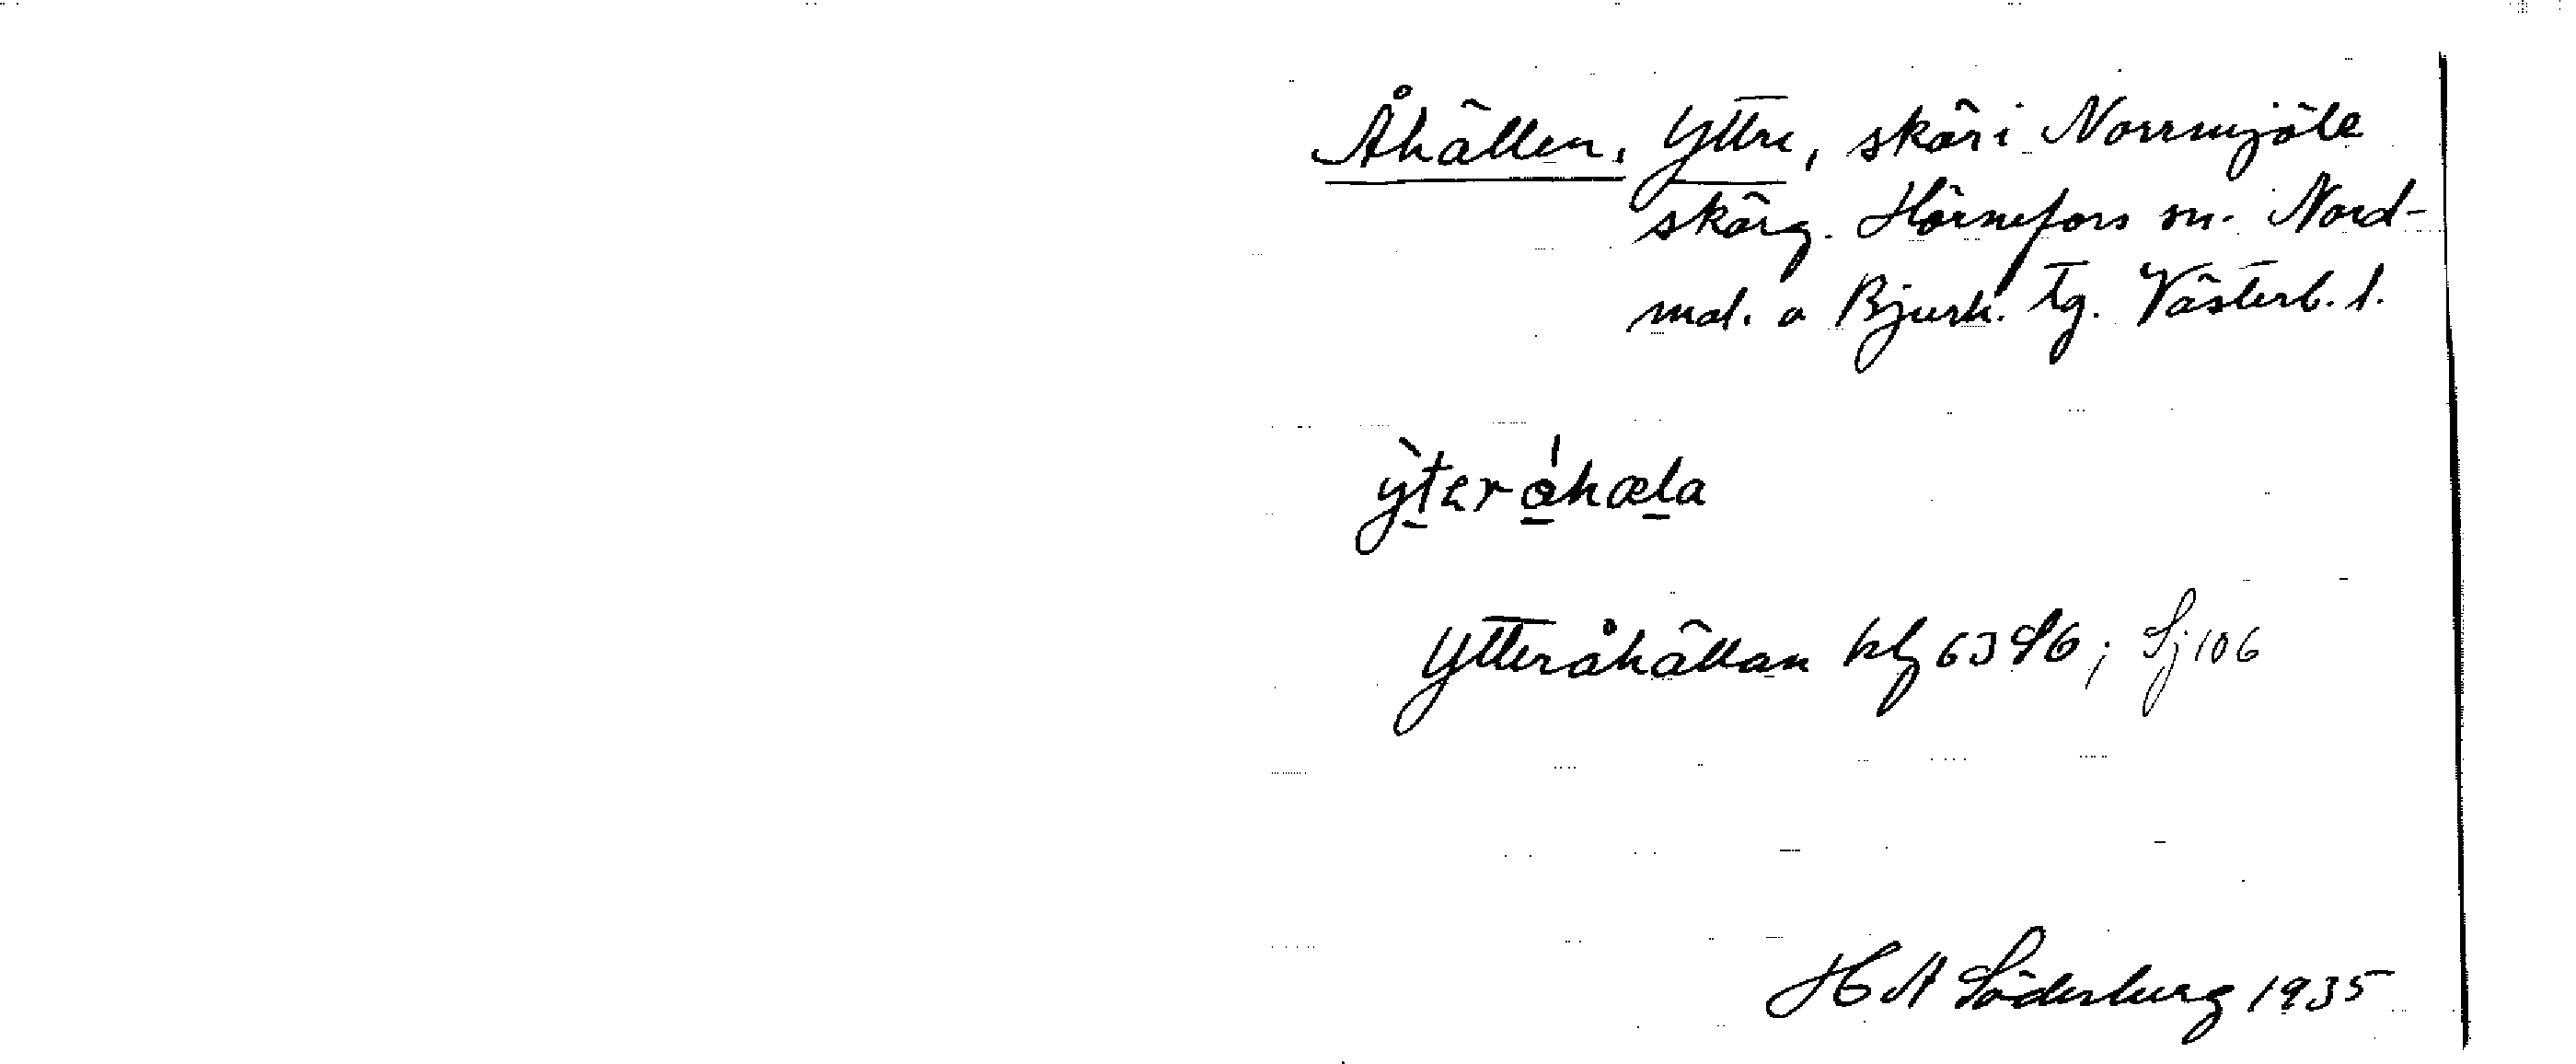 Åhällen, Yttre, skär i Norrmjöle
skärg. Hörnefors sn. Nord-
mal. o Bjurh. tg. Västerb. l.
ỳteråhæla
Ytteråhällan kbl 63 S6; Sj 106
H A Söderberg 1935